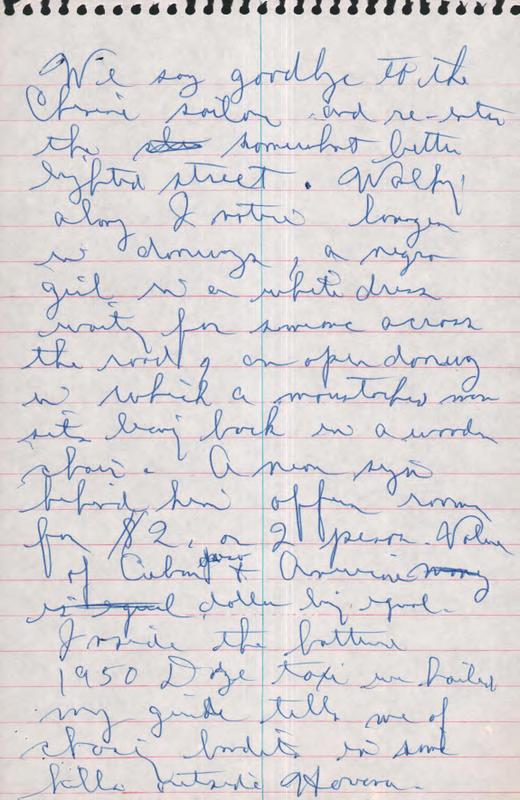 We say goodbye to the
Chinese sailor and re-enter
the somewhat better
lighted street. Walking
along I notice loungers
in doorways, a negro
girl in a white dress
waiting for someone across
the road, an open doorway
in which a moustached man
sits leaning back in a wooden
chair. A neon sign
behind him offers rooms
for $2, or 2 pesos. Value
of Cuban peso + American money
is equal dollar being equal.
Inside the battered
1950 Dodge taxi we hailed
my guide tells me of
chasing bandits in some
hills outside Havana.